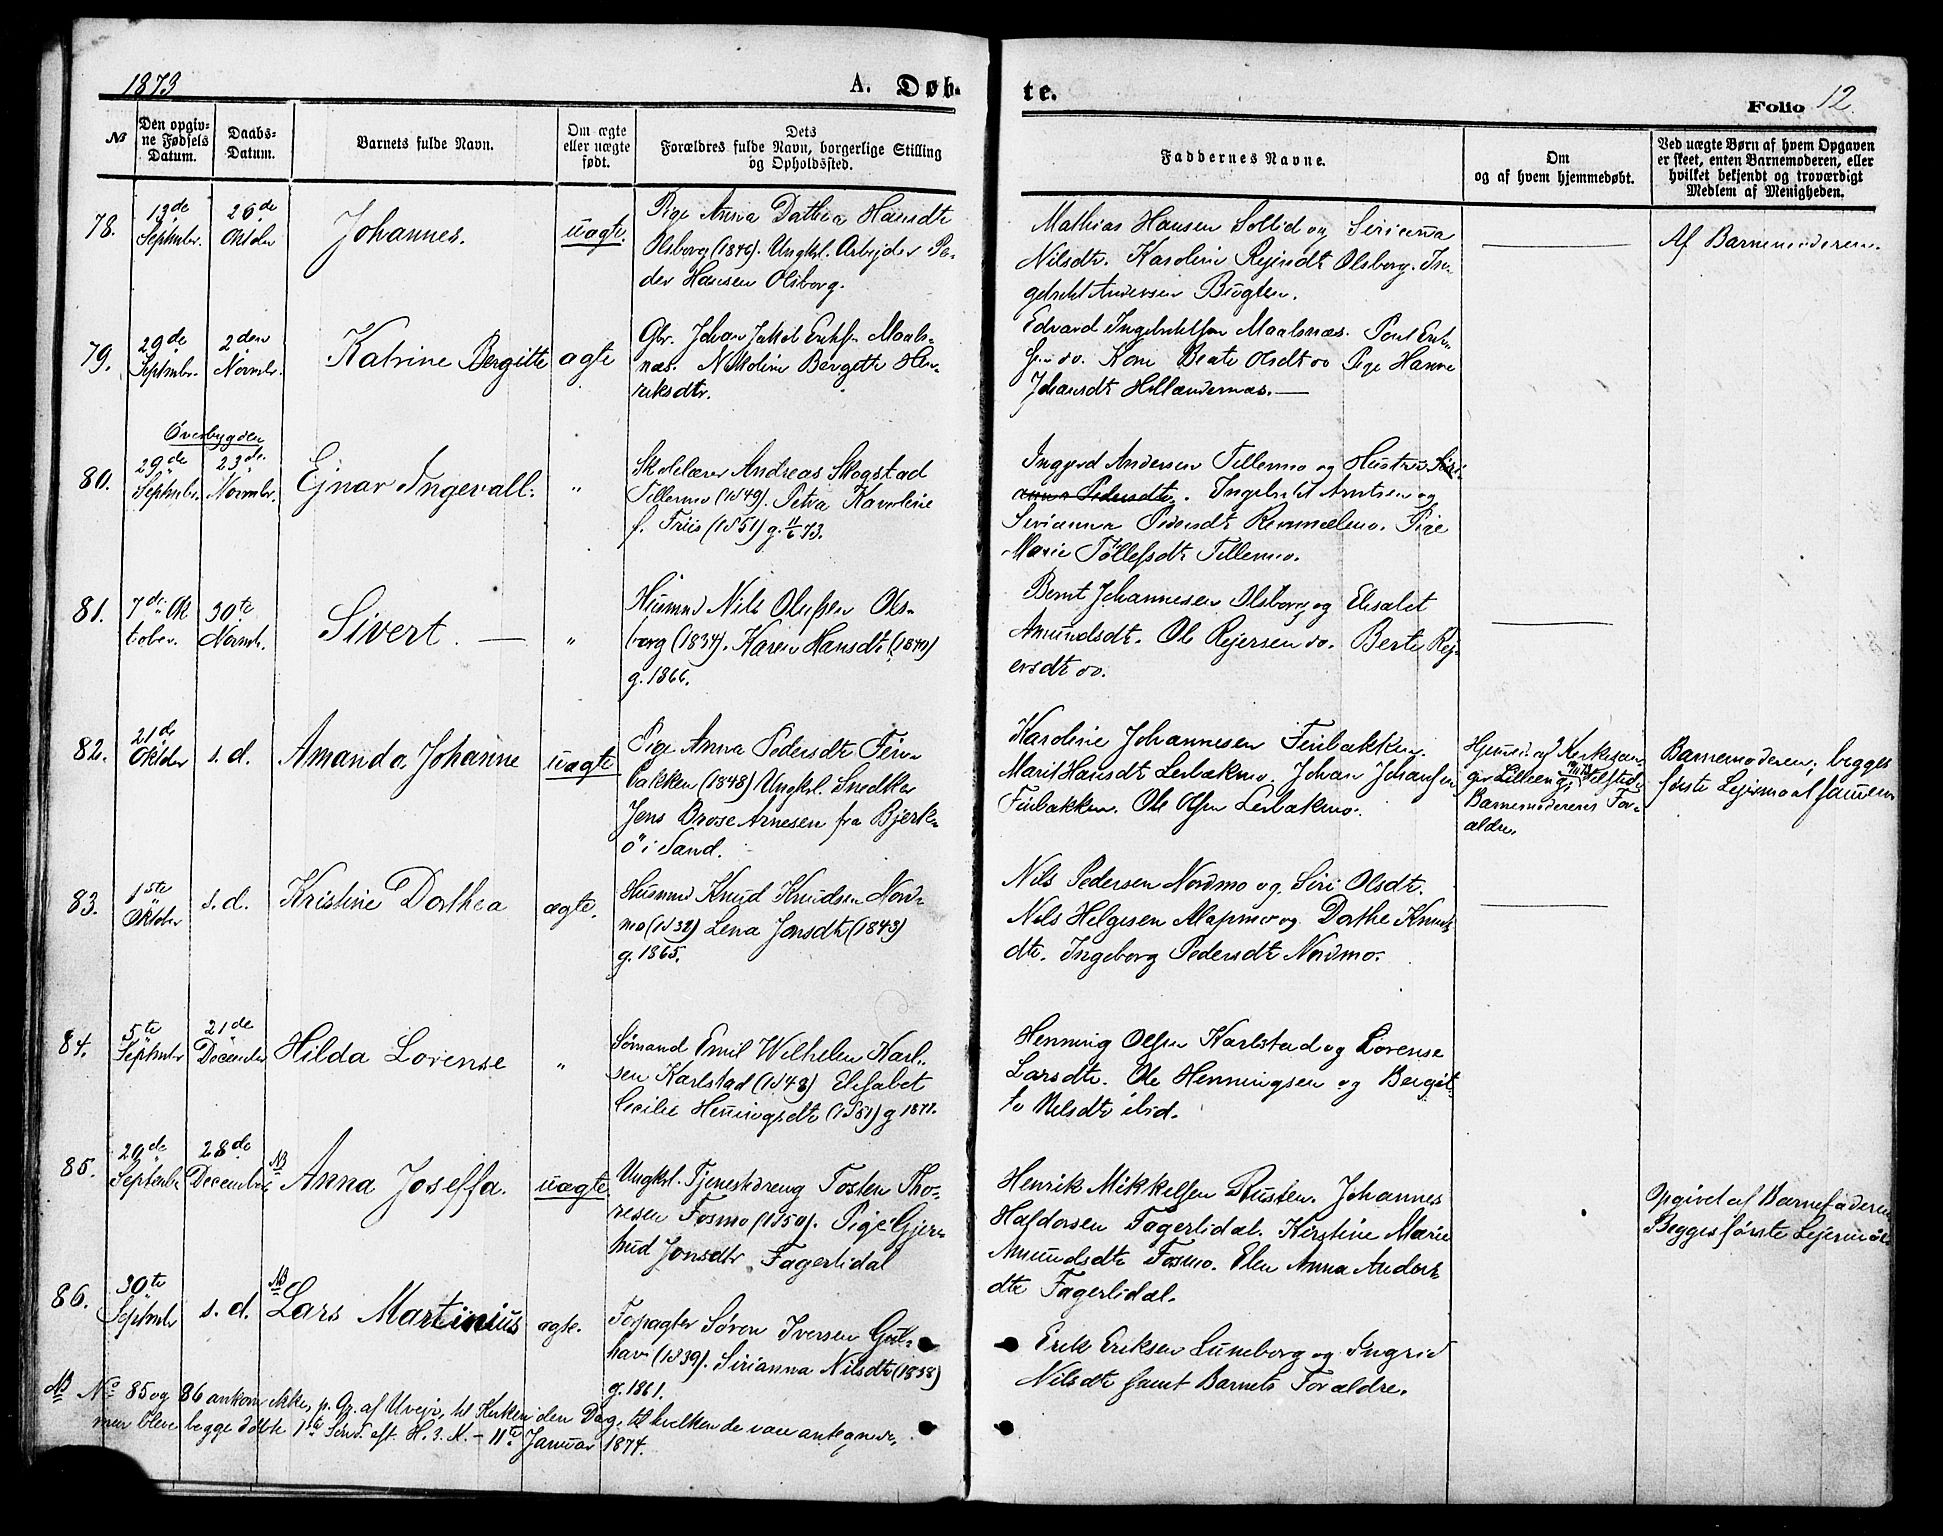 1873
A. Døb-
te.
Folio 12.
№
Den opgiv-
ne Fødsels
Datum.
Daabs-
Datum.
Barnets fulde Navn.
Om ægte
eller uægte
født.
Dets
Forældres fulde Navn, borgerlige Stilling
og Opholdssted.
Faddernes Navne.
Om
og af hvem hjemmedøbt.
Ved uægte Børn af hvem Opgaven
er skeet, enten Barnemoderen, eller
hvilket bekjendt og troværdigt
Medlem af Menigheden.
78.
13de
Septmbr.
26de
Oktbr
Johannes.
uægte.
Pige Anna Dathea Hansdt
Olsborg (1846). Ungkrl. Arbejder Pe-
der Hansen Olsborg.
Mathias Hansen Sollid og Sirianna
Nilsdtr. Karoline Rejersdt Olsborg. In-
gebrikt Andersen Bugten.
Af Barnemoderen.
79.
29de
Septmbr.
2den
Novmbr.
Katrine Bergitte
ægte
Gbr. Johan Jakob Eriksn Maals-
næs. Nikoline Bergitte Hen-
riksdtr.
Edvard Ingebriktsen Maalsnæs. Poul Erik-
sen do. Kone Beate Olsdt do Pige Hanne
Johansdt Hollændernæs.
Overbygden
80.
29de
Septmbr.
23de
Novmbr.
Ejnar Ingevall.
"
Skolelærer Andreas Skogstad
Tillermo (1849). Petra Karoline
f. Friis (1851) g. 11/6 73.
Ingvard Andersen Tillermo og Hustru Siri-
anna Pedersdtr. Ingebrikt Arntsen og
Sirianna Pedersdt Rommælmo. Pige
Marie Tollefsdt Tillermo.
81.
7de Ok
tober.
30te
Novmb.
Sivert.
"
Husmnd Nils Olufsen Ols-
borg (1834). Karen Hansdt (1840)
g. 1866.
Bernt Johannesen Olsborg og Elisabet
Amundsdtr. Ole Rejersen do. Berte Rej-
ersdt do.
82.
21de
Oktber
s. d.
Amanda Johanne
uægte
Pige Anna Pedersdt Fein-
bakken (1848) Ungkrl. Snedker
Jens Brose Arnesen fra Bjerk-
ö i Sand.
Karoline Johannesen Feinbakken.
Marit Hansdt Lerbækmo. Johan Johansen
Feinbakken. Ole Olsen Lerbækmo.
Hjemmed. af Kirkesan-
ger
Barnemoderens For-
ældre
Barnemoderen; begges
første Lejermaal sammen
83.
1ste
Oktber
s. d.
Kristine Dorthea
ægte.
Husmnd Knud Knudsen Nord-
mo (1832) Lena Jonsdt (1843)
g. 1865.
Nils Pedersen Nordmo og Siri Olsdt.
Nils Helgesen Alapmo og Dorthe Knuds
dtr. Ingeborg Pedersdt Nordmo.
84.
5te
Septmbr
21de
Decembr
Hilda Lorense
"
Sømand Emil Wilhelm Karl-
sen Karlstad (1848) Elisabet
Cecilie Henningsdtr (1851) g 1871.
Henning Olsen Karlstad og Lorense
Larsdtr. Ole Henningsen og Bergit-
te Nelsdtr ibid.
85.
29de
Septmbr
28de
December
NB
Anna Joseffa.
uægte.
Ungkrl. Tjenestdreng Tosten Tho-
resen Fosmo (1850). Pige Gjer-
trud Jonsdtr. Fagerlidal
Henrik Mikkelsen Rusten. Johannes
Haldorsen Fagerlidal. Kirstine Marie
Amundsdtr Fosmo. Elen Anna Anders
dtr Fagerlidal.
Opgivet af Barnefaderen
Begges første Lejermaal
86.
30te
Septmbr
s. d.
NB
Lars Martinius
ægte.
Forpagter Søren Iversen Gul-
hav (1839). Sirianna Nilsdtr (1838)
g. 1861.
Erik Eriksen Luneborg og Ingrid
Nilsdtr samt Barnets Forældre.
NB No 85 og 86 ankom ikke, p. G. af Uvejr, til Kirken den Dag, til hvilken de vare antegnede,
men bleve begge døbte 1ste Sønd. eft. H. 3. K. - 11te Januar 1874.